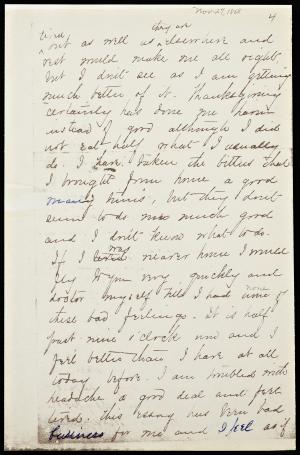 Nov. 27, 1868
4
tired they are
out as well as elsewhere and
rest would make me all right,
but I don't see as I am getting
much better of it. Thanksgiving
certainly has done me harm
instead of good although I did
not eat half what I usually
do. I have taken the bitters that
I brought from home a good
many times, but they don't
seem to do me much good
and I don't know what to do.
If I was nearer home I would
fly to you very quickly and
doctor myself till I had none of
these bad feelings. It is half
past nine o'clock now and I
feel better than I have at all
today before. I am troubled with
headache a good deal and feel
tired. this essay has been bad
business for me and I feel as if